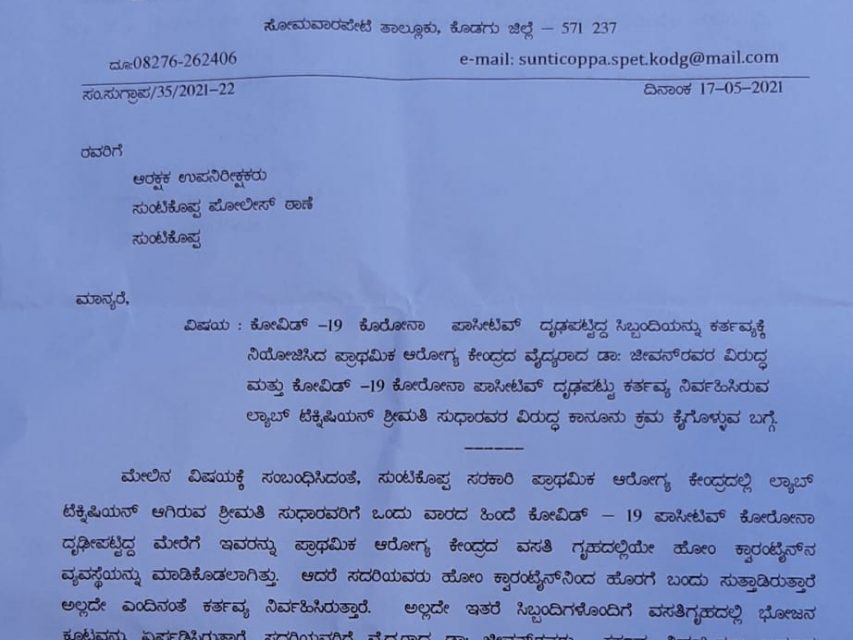 ಸೋಮವಾರಪೇಟೆ ತಾಲ್ಲೂಕು, ಕೊಡಗು ಜಿಲ್ಲೆ – 571 237
ದೂ:08276-262406 e-mail: sunticoppa.spet.kodg@mail.com
ಸಂ.ಸುಗ್ರಾಪ/35/2021-22 ದಿನಾಂಕ 17-05-2021
ರವರಿಗೆ
ಆರಕ್ಷಕ ಉಪನಿರೀಕ್ಷಕರು
ಸುಂಟಿಕೊಪ್ಪ ಪೋಲೀಸ್ ಠಾಣೆ
ಸುಂಟಿಕೊಪ್ಪ
ಮಾನ್ಯರೆ,
ವಿಷಯ : ಕೋವಿಡ್ -19 ಕೊರೋನಾ ಪಾಸೀಟಿವ್ ದೃಢಪಟ್ಟಿದ್ದ ಸಿಬ್ಬಂದಿಯನ್ನು ಕರ್ತವ್ಯಕ್ಕೆ
ನಿಯೋಜಿಸಿದ ಪ್ರಾಥಮಿಕ ಆರೋಗ್ಯ ಕೇಂದ್ರದ ವೈದ್ಯರಾದ ಡಾ: ಜೀವನ್‌ರವರ ವಿರುದ್ಧ
ಮತ್ತು ಕೋವಿಡ್ -19 ಕೋರೋನಾ ಪಾಸಿಟಿವ್ ದೃಢಪಟ್ಟು ಕರ್ತವ್ಯ ನಿರ್ವಹಿಸಿರುವ
ಲ್ಯಾಬ್ ಟೆಕ್ನಿಷಿಯನ್ ಶ್ರೀಮತಿ ಸುಧಾರವರ ವಿರುದ್ಧ ಕಾನೂನು ಕ್ರಮ ಕೈಗೊಳ್ಳುವ ಬಗ್ಗೆ.
ಮೇಲಿನ ವಿಷಯಕ್ಕೆ ಸಂಬಂಧಿಸಿದಂತೆ, ಸುಂಟಿಕೊಪ್ಪ ಸರಕಾರಿ ಪ್ರಾಥಮಿಕ ಆರೋಗ್ಯ ಕೇಂದ್ರದಲ್ಲಿ ಲ್ಯಾಬ್
ಟೆಕ್ನಿಷಿಯನ್ ಆಗಿರುವ ಶ್ರೀಮತಿ ಸುಧಾರವರಿಗೆ ಒಂದು ವಾರದ ಹಿಂದೆ ಕೋವಿಡ್ – 19 ಪಾಸೀಟಿವ್ ಕೋರೋನಾ
ದೃಢೀಪಟ್ಟಿದ್ದ ಮೇರೆಗೆ ಇವರನ್ನು ಪ್ರಾಥಮಿಕ ಆರೋಗ್ಯ ಕೇಂದ್ರದ ವಸತಿ ಗೃಹದಲ್ಲಿಯೇ ಹೋಂ ಕ್ವಾರಂಟೈನ್‌ನ
ವ್ಯವಸ್ಥೆಯನ್ನು ಮಾಡಿಕೊಡಲಾಗಿತ್ತು. ಆದರೆ ಸದರಿಯವರು ಹೋಂ ಕ್ವಾರಂಟೈನ್‌ನಿಂದ ಹೊರಗೆ ಬಂದು ಸುತ್ತಾಡಿರುತ್ತಾರೆ
ಅಲ್ಲದೇ ಎಂದಿನಂತೆ ಕರ್ತವ್ಯ ನಿರ್ವಹಿಸಿರುತ್ತಾರೆ. ಅಲ್ಲದೇ ಇತರೆ ಸಿಬ್ಬಂದಿಗಳೊಂದಿಗೆ ವಸತಿಗೃಹದಲ್ಲಿ ಭೋಜನ
ಕೂಟವನ್ನು ಏರ್ಪಡಿಸಿರುತ್ತಾರೆ ಸದರಿಯವರಿಗೆ ವೈದ್ಯರಾದ ಡಾ: